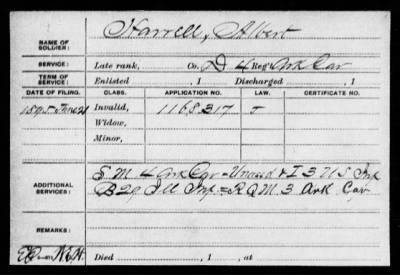 NAME OF SOLDIER: Harrell, Albert
SERVICE: Late rank, Co. D 4 Reg't Ark Cav
TERM OF SERVICE: Enlisted , 1 Discharged , 1
DATE OF FILING. CLASS. APPLICATION NO. LAW. CERTIFICATE NO.
1895 June 21 Invalid, 1168317 J
Widow,
Minor,
S M 4 Ark Cav - Unasd & I 3 U S Inf
ADDITIONAL SERVICES: B 29 Ill Inf = R Q M 3 Ark Cav
REMARKS:
Died , 1 , at